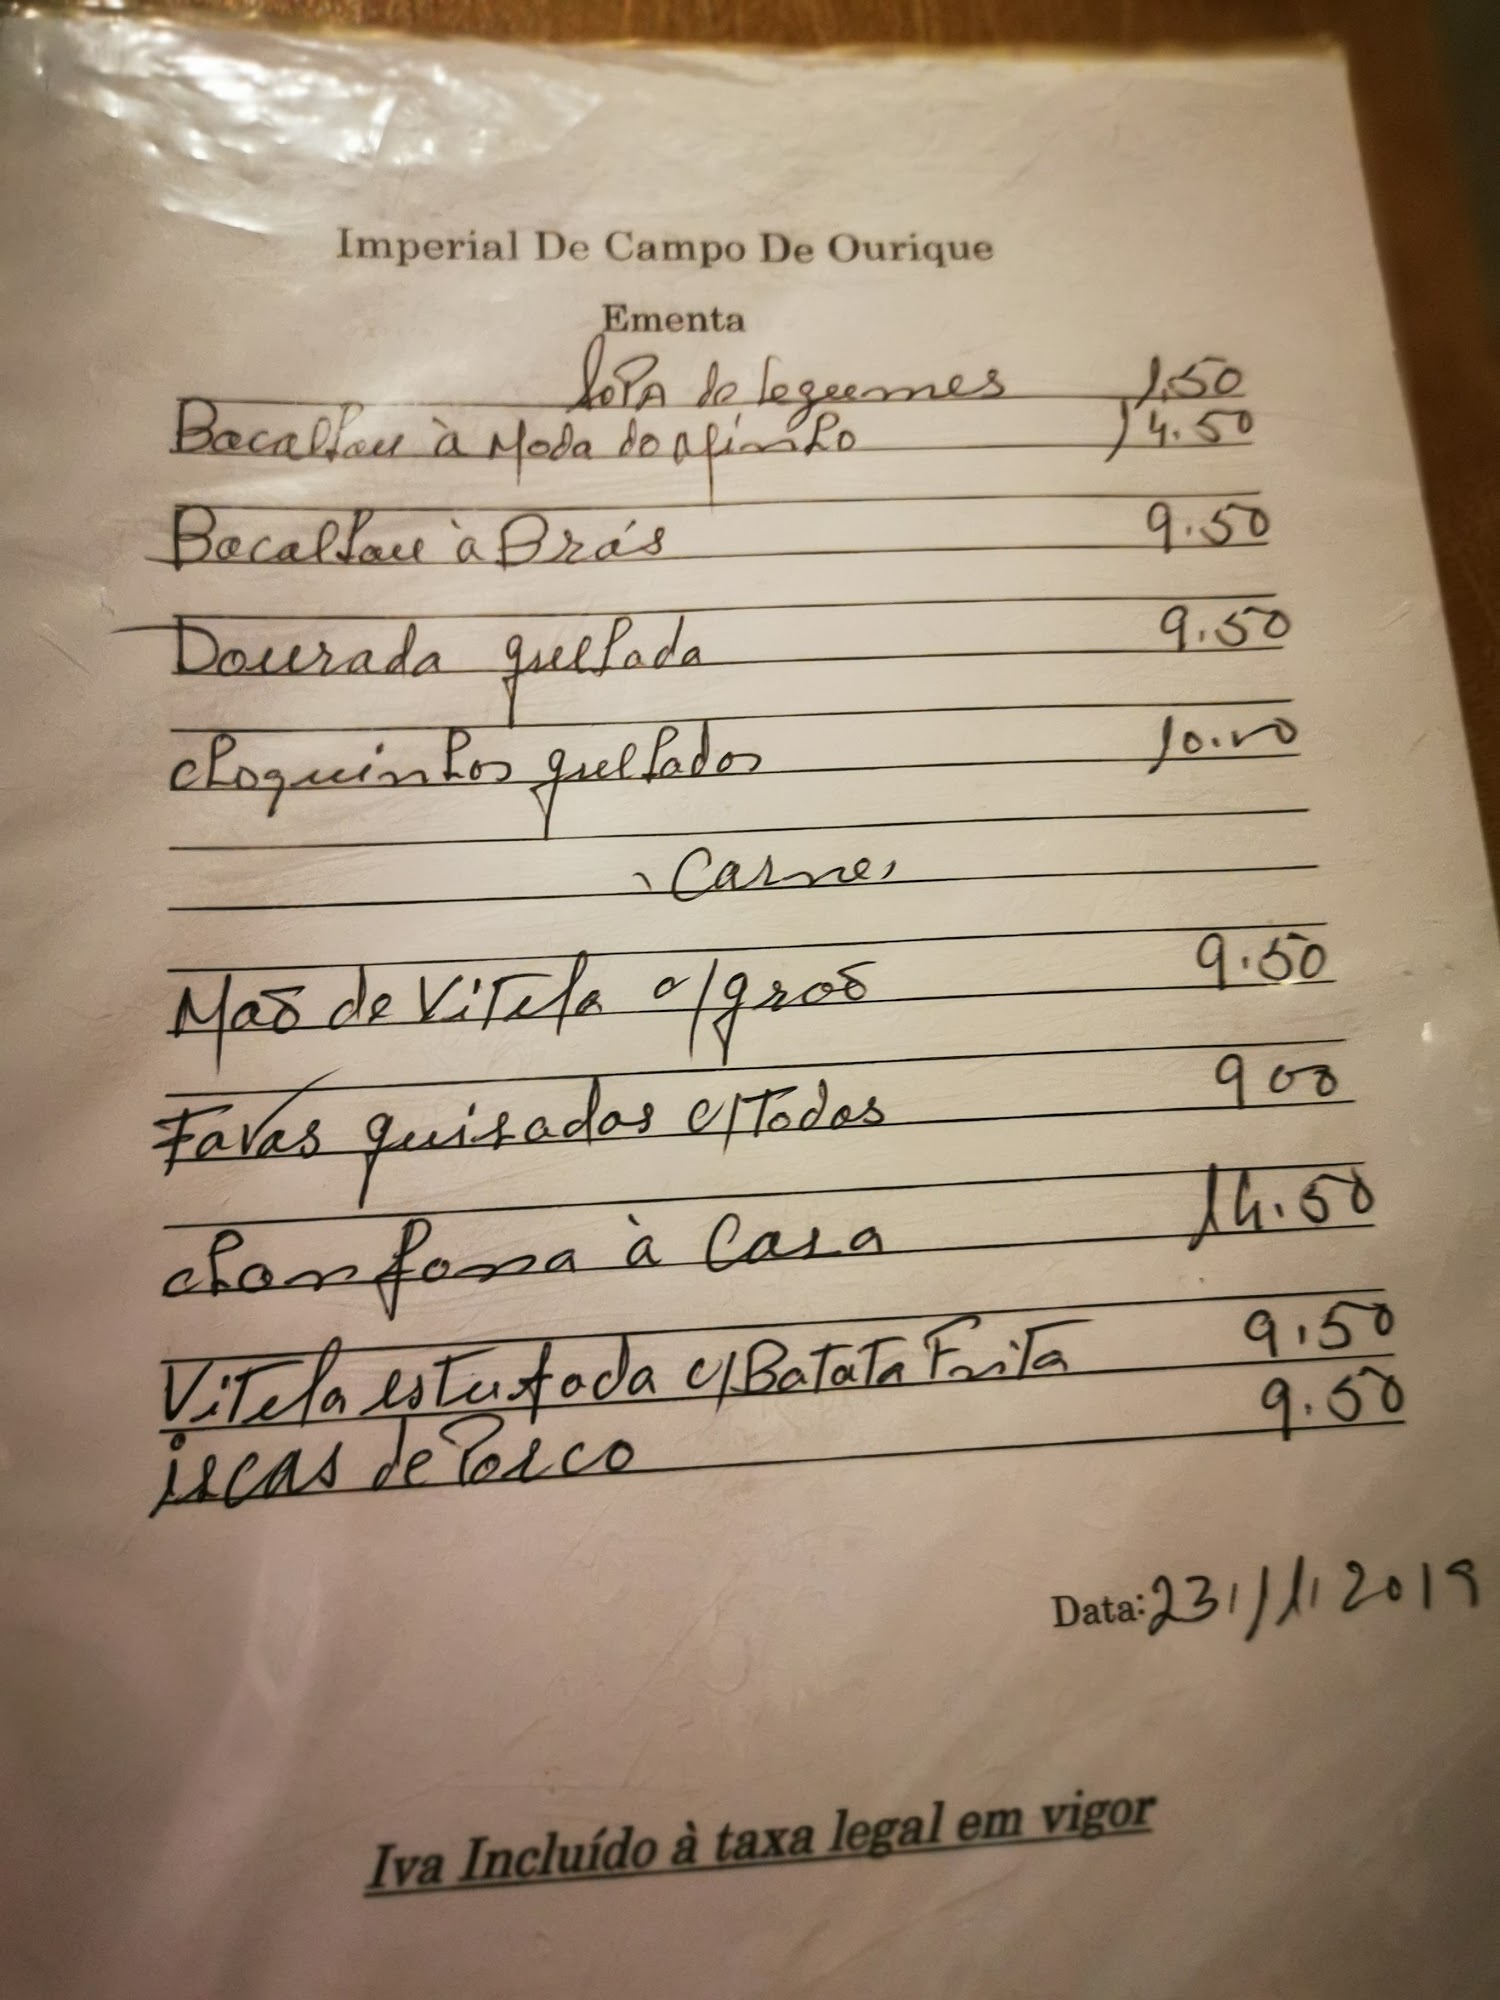 Imperial De Campo De Ourique
Ementa
Sopa de legumes 1.50
Bacalhau à Moda do Minho 14.50
Bacalhau à Brás 9.50
Dourada grelhada 9.50
choquinhos grelhados 10.00
Carne,
Maõ de Vitela c/graõ 9.50
Favas guisadas c/Todos 9 00
chanfana à Casa 14.50
Vitela estufada c/Batata Frita 9.50
iscas de Porco 9.50
Data: 23/11/2019
Iva Incluído à taxa legal em vigor